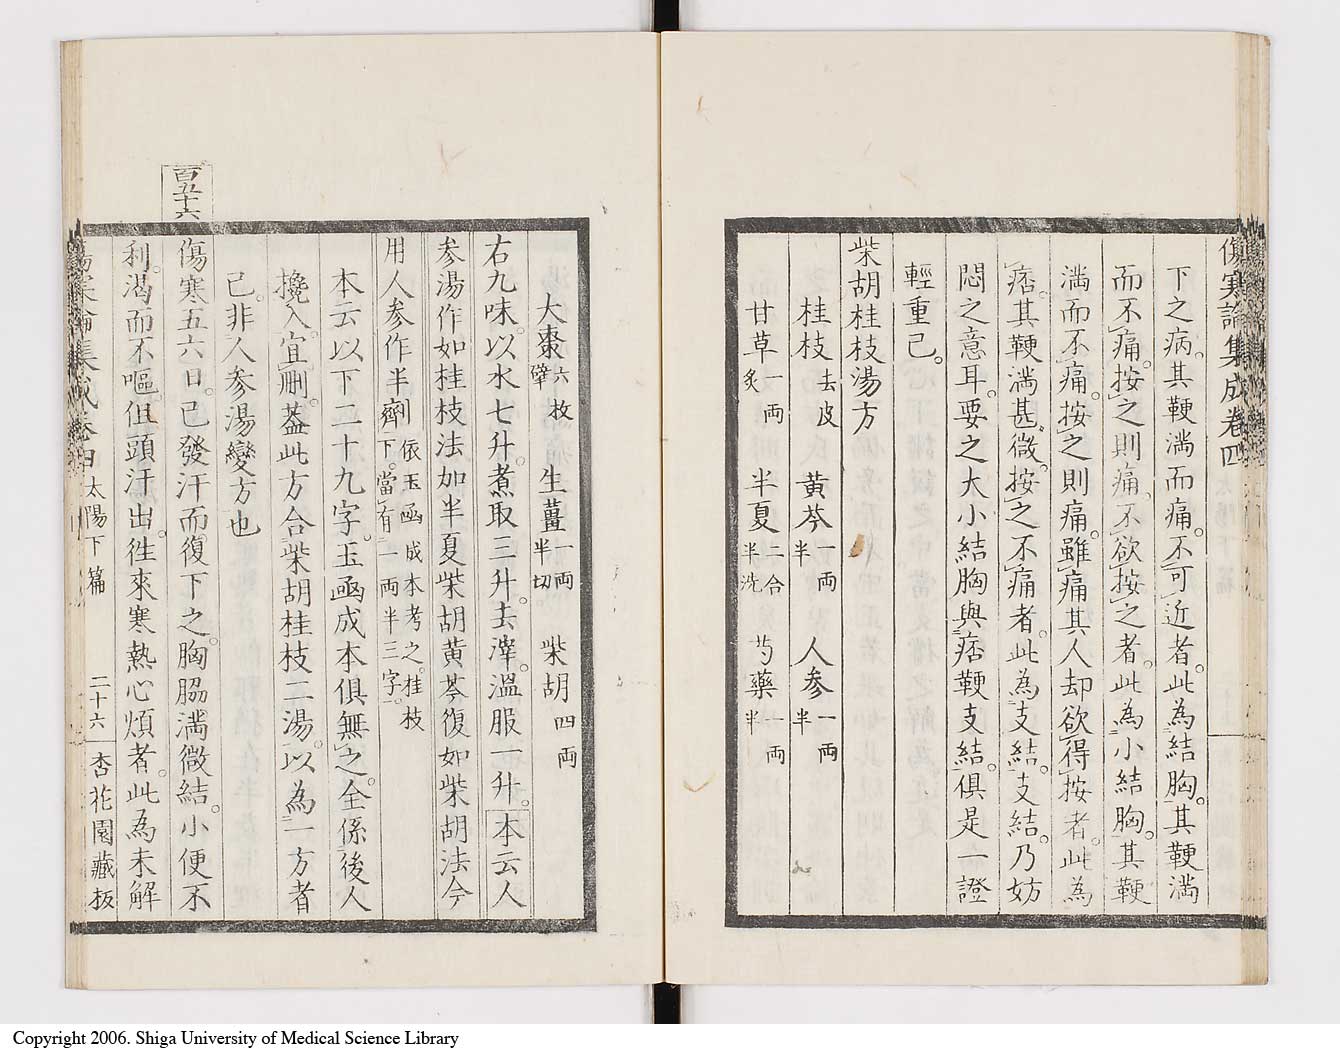 傷寒論集成卷四
下之病。其鞕満而痛。不可近者。此為結胸。其鞕満
而不痛。按之則痛。不欲按之者。此為小結胸。其鞕
満而不痛。按之則痛。雖痛其人却欲得按者。此為
痞。其鞕満甚微。按之不痛者。此為支結。支結。乃妨
悶之意耳。要之大小結胸與痞鞕支結。俱是一證
輕重已。
柴胡桂枝湯方
桂枝去皮 黄芩一両半 人参一両半
甘草一両炙 半夏二合半洗 芍藥一両半
大棗六枚擘 生薑一両半切 柴胡四両
右九味。以水七升。煮取三升。去滓。溫服一升。本云人
参湯作如桂枝法加半夏柴胡黄芩復如柴胡法今
用人参作半劑依玉函成本考之。桂枝下。當有一両半三字。
本云以下二十九字。玉函成本俱無之。全係後人
攙入。宜刪。蓋此方合柴胡桂枝二湯。以為一方者
已。非人参湯變方也
百五十六
傷寒五六日。已發汗而復下之。胸脇満微結。小便不
利。渴而不嘔。但頭汗出。徃來寒熱心煩者。此為未解
傷寒論集成卷四 太陽下篇 二十六 杏花園藏板
Copyright 2006. Shiga University of Medical Science Library